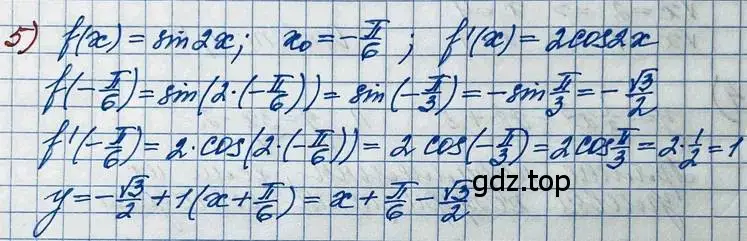 5) f(x) = sin2x; x₀ = -π/6; f'(x) = 2cos2x
f(-π/6) = sin(2·(-π/6)) = sin(-π/3) = -sin π/3 = -√3/2
f'(-π/6) = 2·cos(2·(-π/6)) = 2 cos(-π/3) = 2cos π/3 = 2·1/2 = 1
y = -√3/2 + 1(x + π/6) = x + π/6 - √3/2
gdz.top